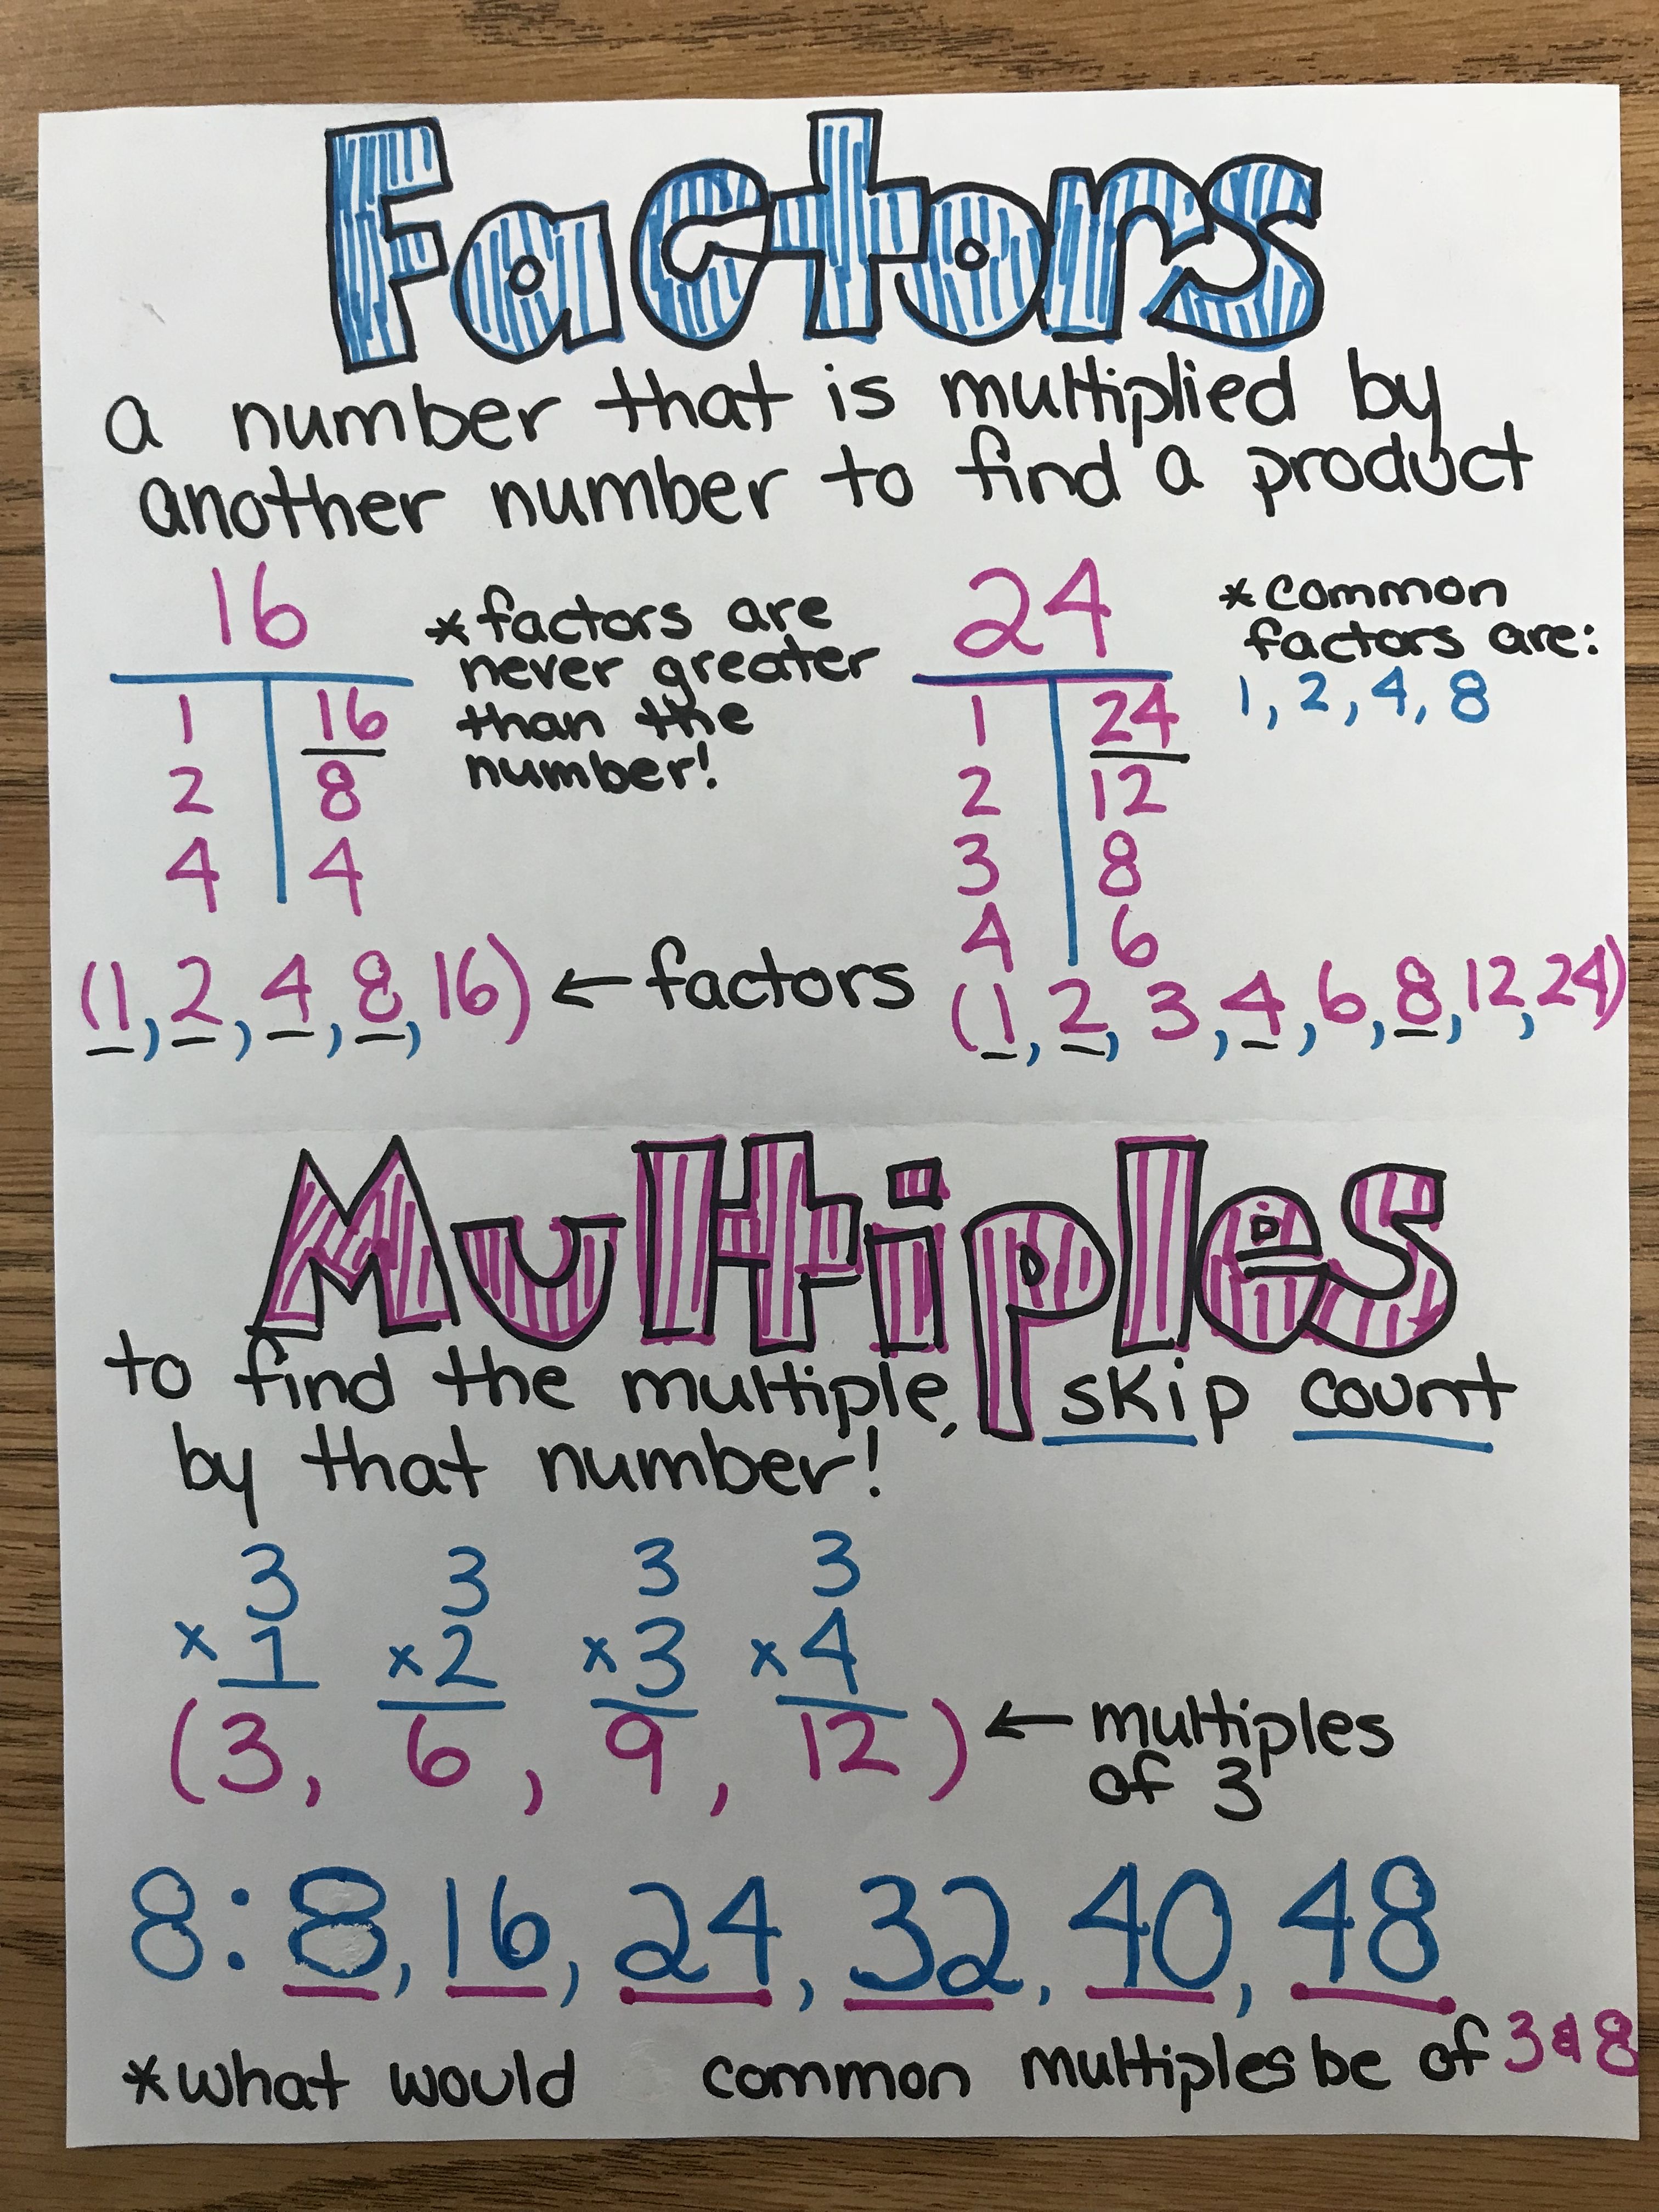 Factors
a number that is multiplied by
another number to find a product
16
1 16
2 8
4 4
(1, 2, 4, 8, 16) ← factors
*factors are
never greater
than the
number!
24
1 24
2 12
3 8
4 6
(1, 2, 3, 4, 6, 8, 12, 24)
*common
factors are:
1, 2, 4, 8
Multiples
to find the multiple, skip count
by that number!
3 3 3 3
×1 ×2 ×3 ×4
(3, 6, 9, 12) ← multiples
of 3
8: 8, 16, 24, 32, 40, 48
*what would common multiples be of 3 & 8